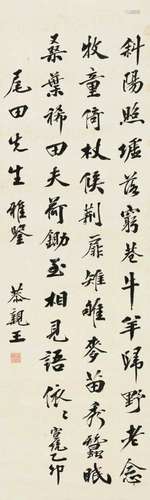 斜陽照墟落窮巷牛羊歸野老念
牧童倚杖候荆扉雉雊麥苗秀蠶眠
桑葉稀田夫荷鋤至相見語依〻
宣統乙卯
尾田先生雅鑒
恭親王